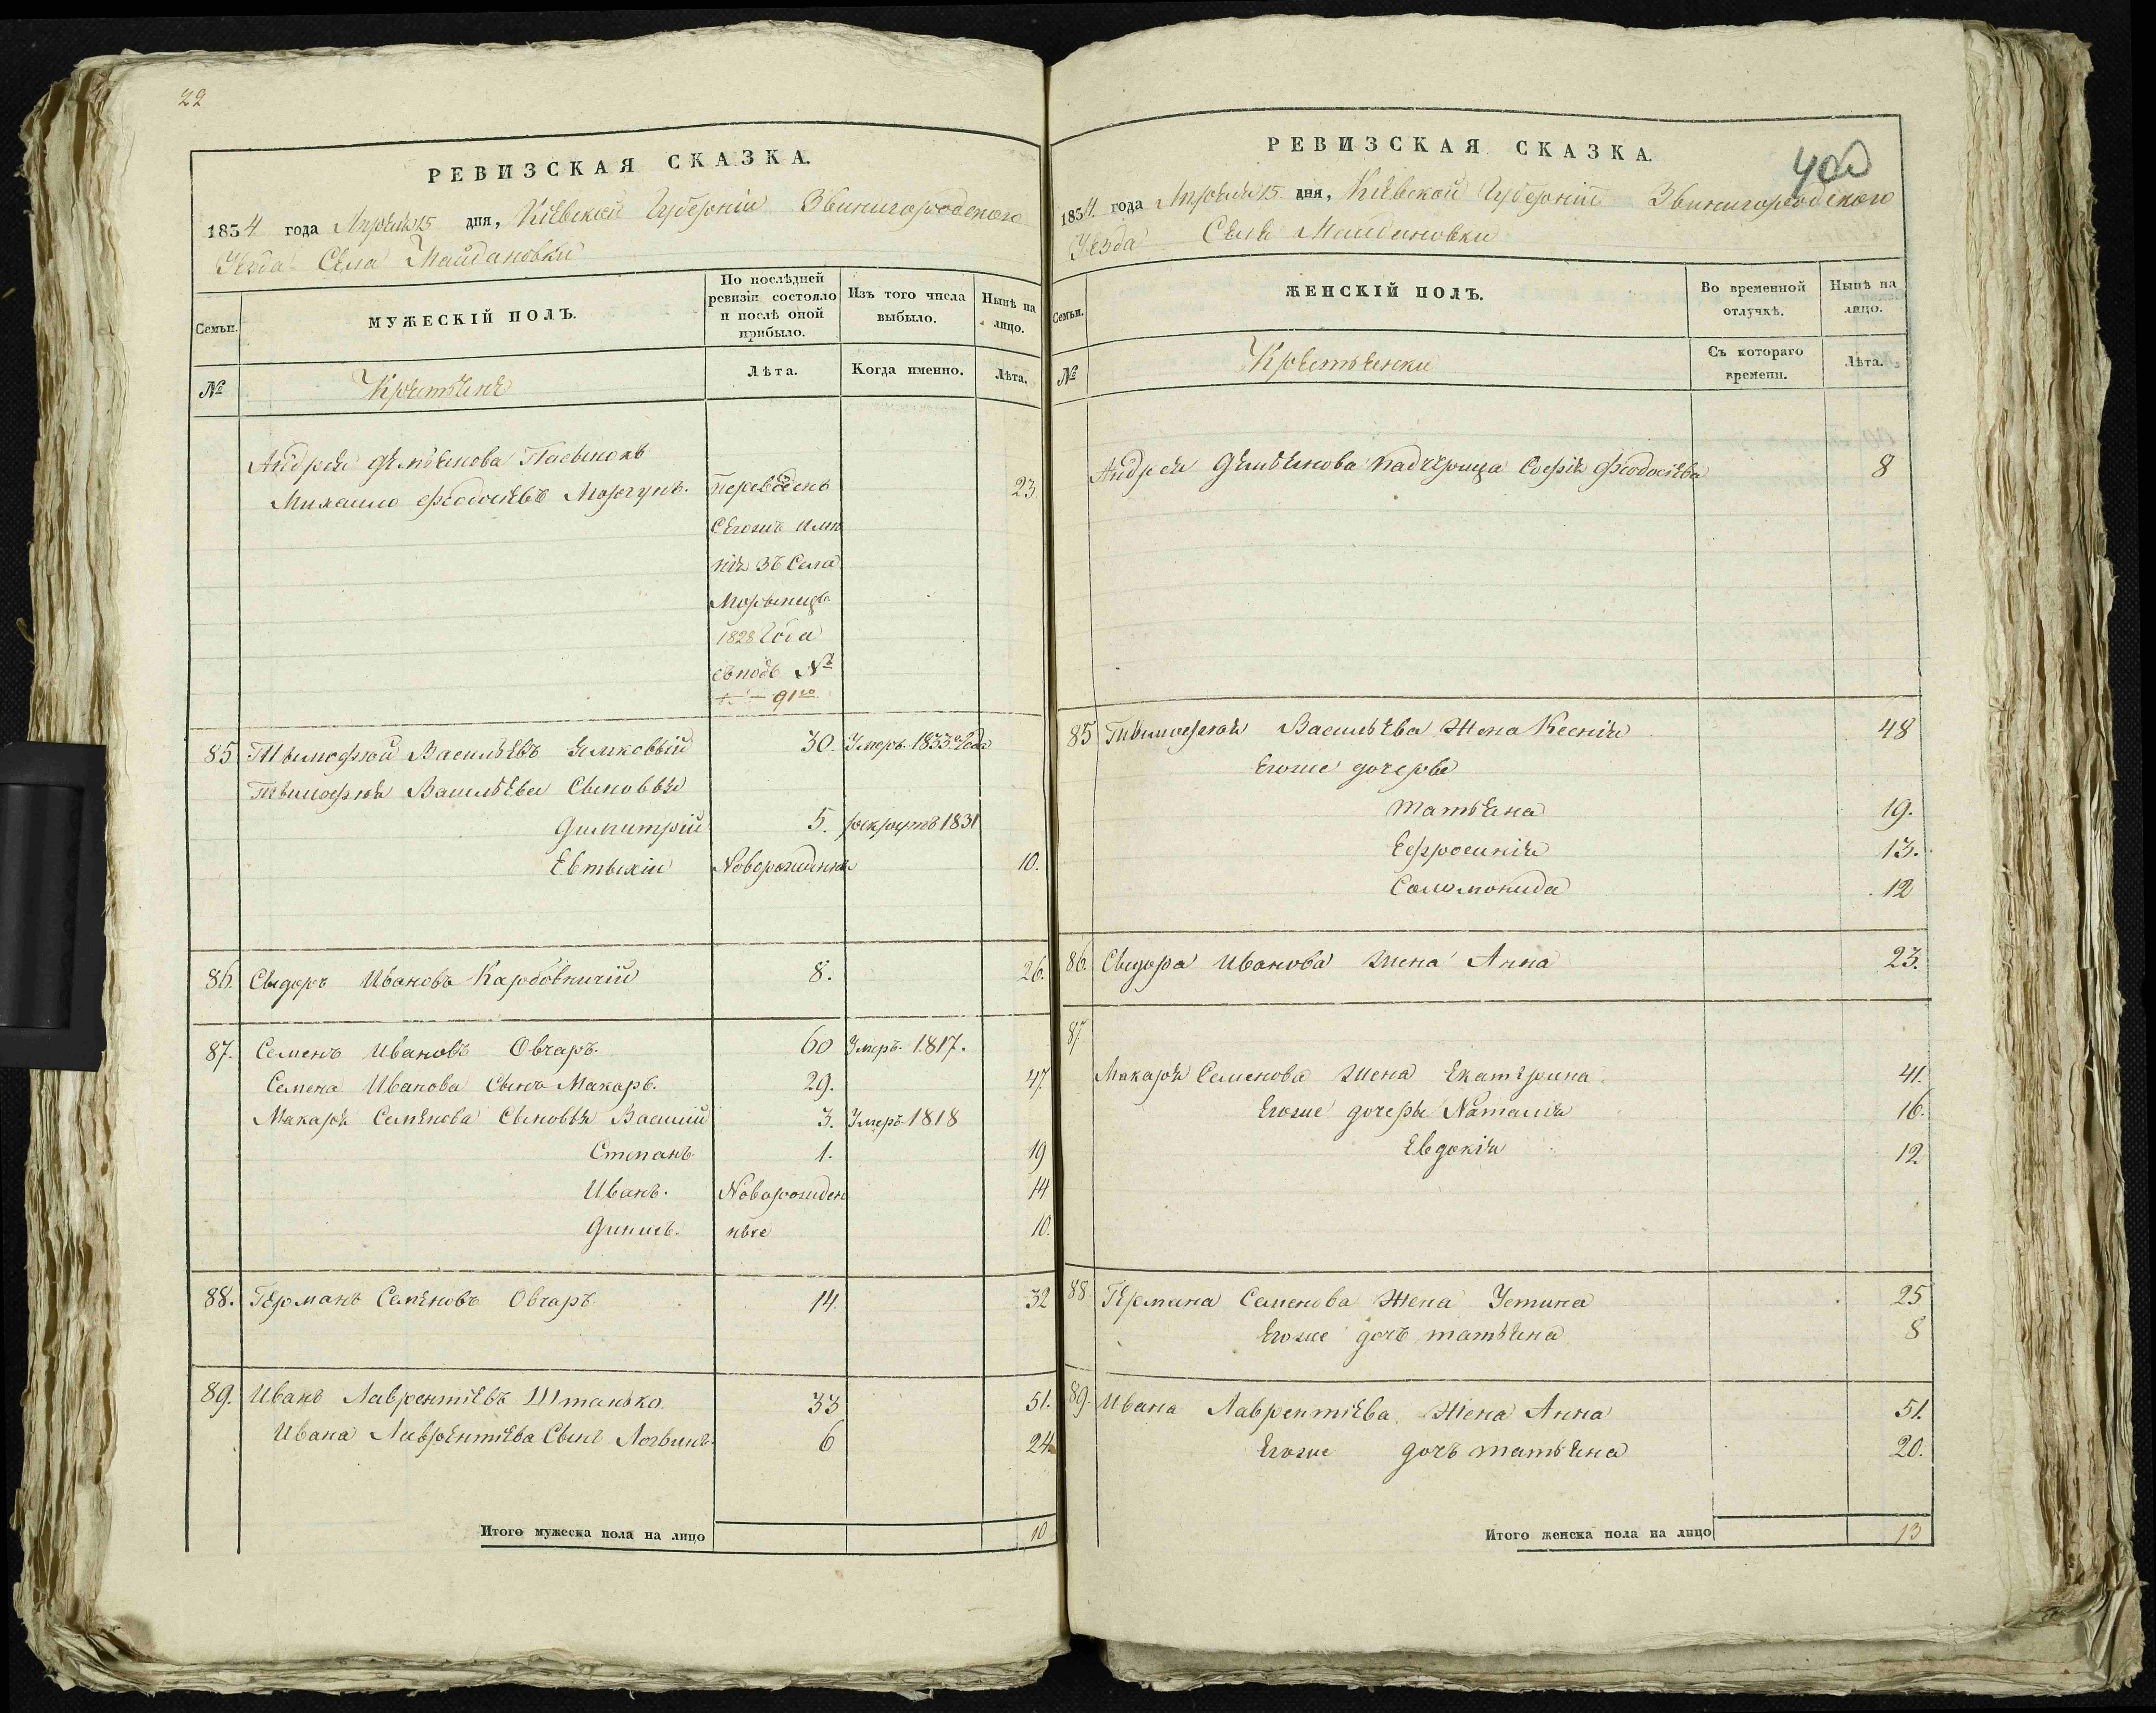 22
РЕВИЗСКАЯ СКАЗКА.
1834 года Апреля 15 дня, Кіевской Губерніи Звенигородского
Уезда Села Майдановки
Семьи.
МУЖЕСКІЙ ПОЛЪ.
По послѣдней ревизіи состояло и послѣ оной прибыло.
Изъ того числа выбыло.
Нынѣ на лицо.
№
Крестяне
Лѣта.
Когда именно.
Лѣта.
Андрея Демянова Пасынокъ
Михаило Феодосіевъ Моргунъ. переведенъ 23.
Сегожъ име
нія зъ Села
Морынецъ
1828 Года
съ подъ №
91го
85 Тымофтой Васильевъ 30. Умеръ 1833 Года
Тымофтея Васильева Сыновья
Димитрій 5. рекрутъ 1831
Евтыхій Новорожденны 10.
86. Сыдоръ Ивановъ Карбовничій 8. 26.
87. Семенъ Ивановъ Овчаръ. 60 Умеръ 1817.
Семена Иванова Сынъ Макаръ. 29. 47
Макара Семенова Сыновья Василій 3. Умеръ 1818
Степанъ. 1. 19
Иванъ. Новорожден 14
Динисъ. ные 10.
88. Германъ Семеновъ Овчаръ. 14. 32
89. Иванъ Лаврентіевъ Штанько. 33 51.
Ивана Лаврентіева Сынъ Логвинъ. 6 24
Итого мужеска пола на лицо 10
РЕВИЗСКАЯ СКАЗКА.
400
1834 года Апреля 15 дня, Кіевской Губерніи Звенигородского
Уезда Села Майдановки
Семьи.
ЖЕНСКІЙ ПОЛЪ.
Во временной отлучкѣ.
Нынѣ на лицо.
№
Крестьянки
Съ котораго времени.
Лѣта.
Андрея Демянова падчерица Софія Феодосіева 8
85 Тымофтея Васильева Жена Ксенія 48
Егоже дочеры
Татьяна 19.
Ефросинія 13.
Соломонида 12
86. Сыдора Иванова жена Анна 23.
87.
Макара Семенова жена Екатерина 41.
Егоже дочеры Наталія 16.
Евдокія 12
88 Германа Семенова Жена Устина 25
Егоже дочъ татьяна 8
89. Ивана Лаврентіева Жена Анна 51.
Егоже дочъ татьяна 20.
Итого женска пола на лицо 13